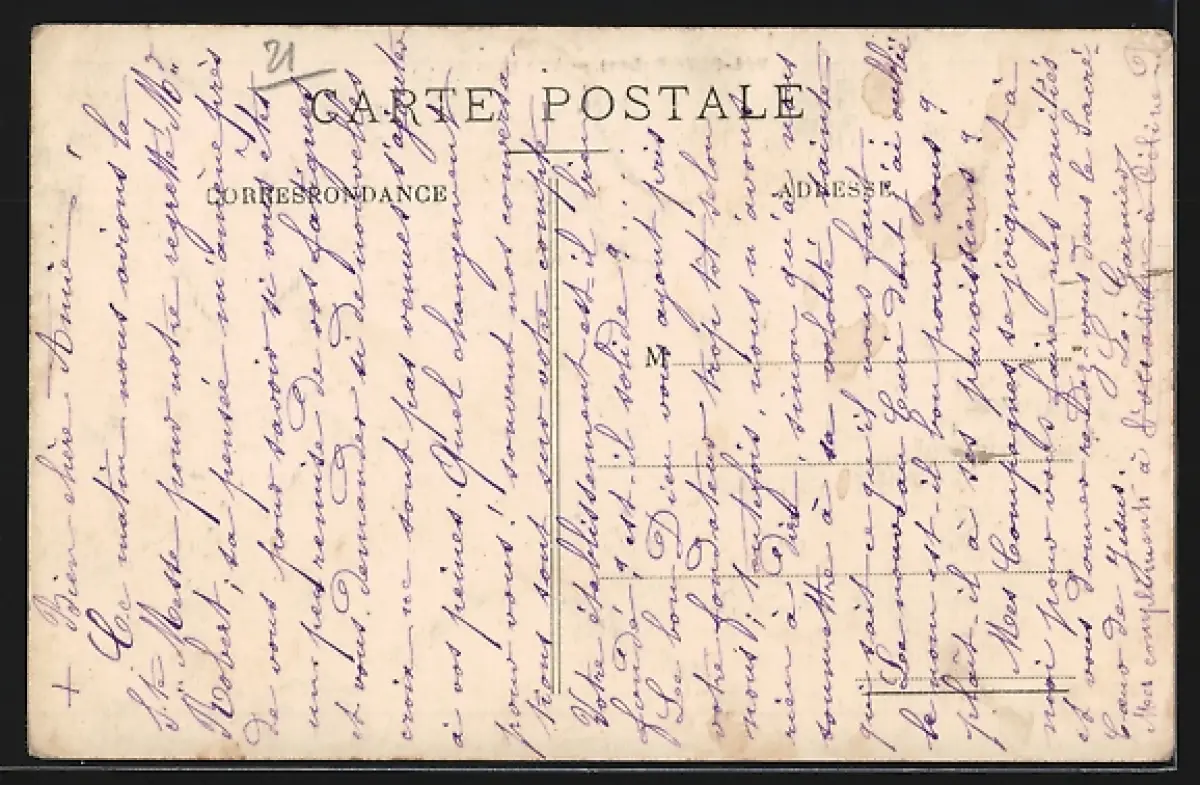 21
CARTE POSTALE
CORRESPONDANCE
ADRESSE
M
+ Bien chère Amie!
Ce matin nous avions la
Ste Messe pour notre regretté Mr
Robert; ta pensé m'amène près
de vous pour savoir si vous êtes
un peu remise de vos fatigues
et vous demander si de nouvelles
croix ne sont pas venues s'ajouter
à vos peines. Quel changement
pour vous! souvent nos conversa-
tions sont sur votre compte.
Votre établissement est-il bien
fondé, est-il solide?
Le bon Dieu vous ayant pris
votre fondateur trop tôt selon
nous; toutefois, nous n'avons
rien à dire, sinon qu'à nous
soumettre à sa volonté sainte
qui sait ce qu'il nous faut.
Le nouveau Curé dont j'ai oublié
le nom est-il bon pour vous?
plaît-il à ses paroissiens?
Mes Compagnes se joignent à
moi pour vous faire nos amitiés
et vous donner rendez-vous dans le Sacré-
Cœur de Jésus. Garnier
Mes compliments à à Céline